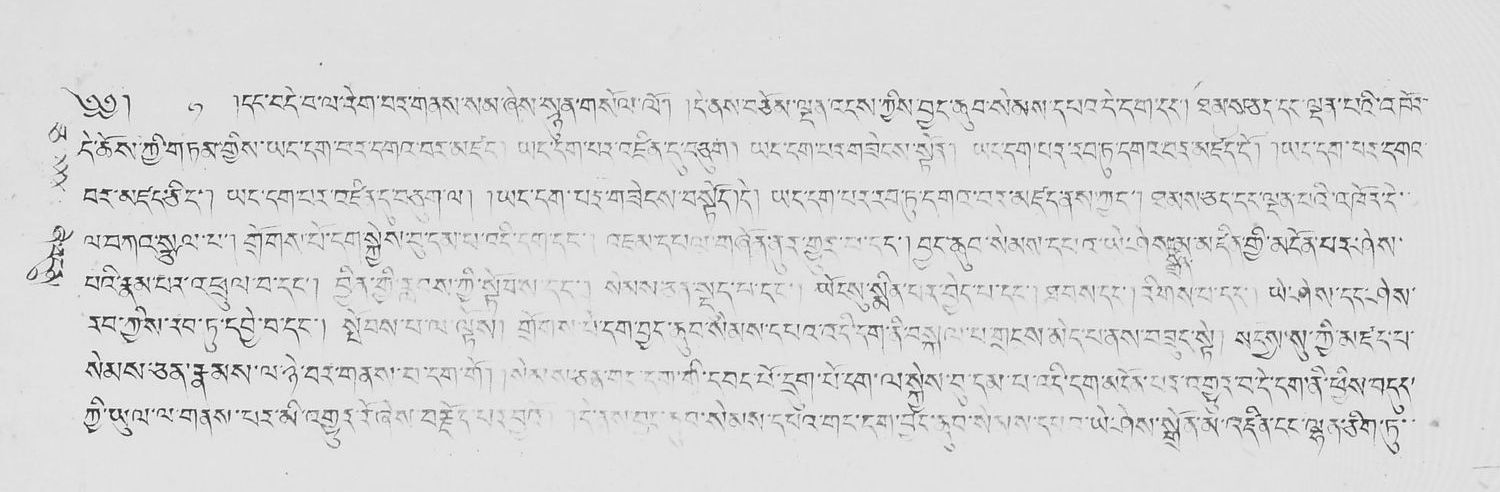 ༄༅། ། །དང་བདེ་བ་ལ་རེག་པར་གནས་སམ་ཞེས་སྙུན་གསོལ་ལོ། །དེ་ནས་བཅོམ་ལྡན་འདས་ཀྱིས་བྱང་ཆུབ་སེམས་དཔའ་དེ་དག་དང་། ཐམས་ཅད་དང་ལྡན་པའི་འཁོར་
དེ་ཆོས་ཀྱི་གཏམ་གྱིས་ཡང་དག་པར་དགའ་བར་མཛད། ཡང་དག་པར་འཛིན་དུ་བཅུག །ཡང་དག་པར་གཟེངས་སྟོད། ཡང་དག་པར་རབ་ཏུ་དགའ་བར་མཛད་དོ། །ཡང་དག་པར་དགའ་
བར་མཛད་ཅིང་། ཡང་དག་པར་འཛིན་དུ་བཅུག་ལ། །ཡང་དག་པར་གཟེངས་བསྟོད་དེ། ཡང་དག་པར་རབ་ཏུ་དགའ་བར་མཛད་ནས་ཀྱང་། ཐམས་ཅད་དང་ལྡན་པའི་འཁོར་དེ་
ལ་བཀའ་སྩལ་པ། གྲོགས་པོ་དག་སྐྱེས་བུ་དམ་པ་འདི་དག་དང་། འཇམ་དཔལ་གཞོན་ནུར་གྱུར་པ་དང་། བྱང་ཆུབ་སེམས་དཔའ་ཡེ་ཤེས་སྒྲོན་མ་འཛིན་གྱི་མངོན་པར་ཤེས་
པའི་རྣམ་པར་འཕྲུལ་བ་དང་། བྱིན་གྱི་རླབས་ཀྱི་སྟོབས་དང་། སེམས་ཅན་སྤྱད་པ་དང་། ཡོངསུ་སྨིན་པར་བྱེད་པ་དང་། ཐབས་དང་། རིགས་པ་དང་། ཡེ་ཤེས་དང་ཤེས་
རབ་ཀྱིས་རབ་ཏུ་དབྱེ་བ་དང་། སྤོབས་པ་ལ་ལྟོས། གྲོགས་པོ་དག་བྱང་ཆུབ་སེམས་དཔའ་འདི་དག་ནི་བསྐལ་པ་གྲངས་མེད་པ་ནས་བཟུང་སྟེ། སངརྒྱསུ་ཀྱི་མཛད་པ་
སེམས་ཅན་རྣམས་ལ་ཉེ་བར་གནས་པ་དག་གོ། །སེམས་ཅན་གང་དག་གི་དབང་པོ་དྲུག་པོ་དག་ལ་སྐྱེས་བུ་དམ་པ་འདི་དག་མངོན་པར་འགྱུར་བ་དེ་དག་ནི་ཕྱིས་བདུད་
ཀྱི་ཡུལ་ལ་གནས་པར་མི་འགྱུར་རོ་ཞེས་བརྗོད་པར་བྱའོ། །དེ་ནས་བྱང་ཆུབ་སེམས་དཔའ་གང་དག་བྱང་ཆུབ་སེམས་དཔའ་ཡེ་ཤེས་སྒྲོན་མ་འཛིན་དང་ལྷན་ཅིག་ཏུ་